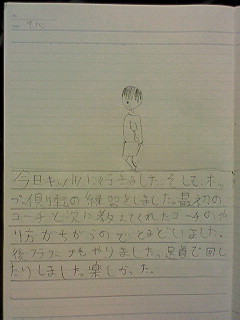 今日キッズに行きました。そして、ホッ
プ、側転の練習をしました。最初の
コーチと次に教えてくれたコーチのや
り方がちがうのでとまどいました。
後フラフープもやりました。足首で回し
たりしました。楽しかった。